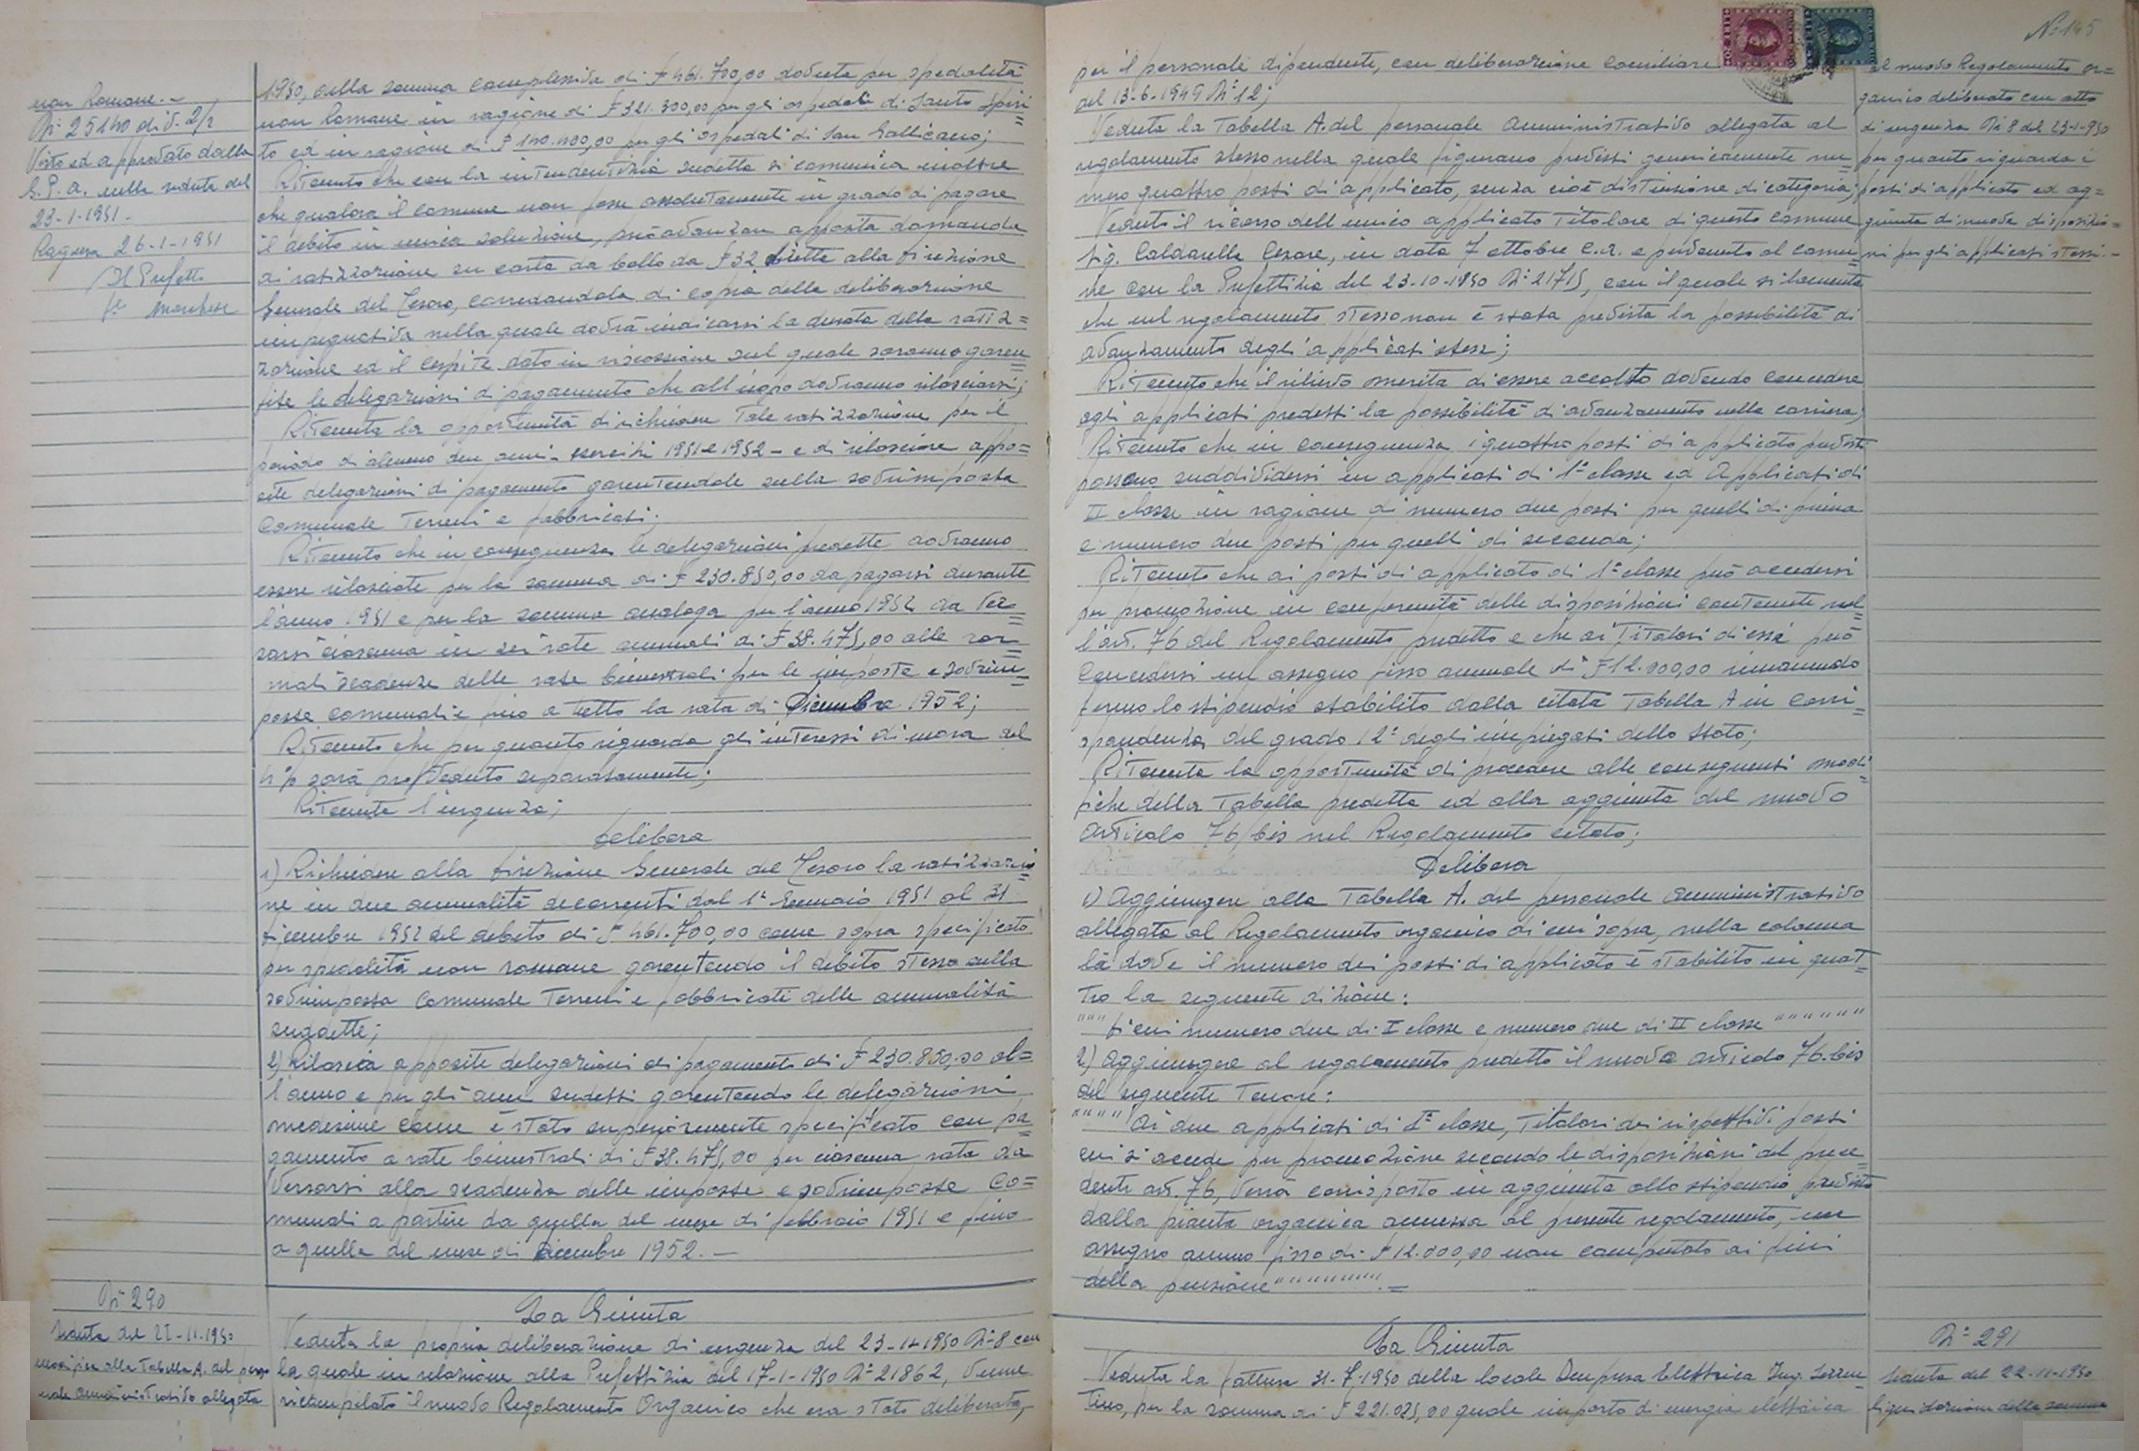 non Romane.-
N° 25140 div. 2/2
Visto ed approvato dalla
G.P.A. nella seduta del
23-1-1951-
Ragusa 26-1-1951
Il Prefetto
1950, della somma complessiva di £ 461.700,00 dovuta per spedalità
non Romane in ragione di £ 321.300,00 per gli ospedali di Santo Spiri=
to ed in ragione di £ 140.400,00 per gli ospedali di San Gallicano;
Ritenuto che con la intendentizia sudetta si comunica inoltre
che qualora il comune non fosse assolutamente in grado di pagare
il debito in unica soluzione, può avanzare apposita domanda
di ratizzazione su carta da bollo da £ 32 diretta alla Direzione
Generale del Tesoro, corredandola di copia della deliberazione
impegnativa nella quale dovrà indicarsi la durata della ratiz=
zazione ed il cespite dato in riscossione sul quale saranno garen=
tite le delegazioni di pagamento che all'uopo dovranno rilasciarsi;
Ritenuta la opportunità di richiedere tale ratizzazione per il
periodo di almeno due anni - esercizi 1951 e 1952 - e di rilasciare appo=
site delegazioni di pagamento garentendole sulla sovrimposta
Comunale Terreni e fabbricati;
Ritenuto che in conseguenza le delegazioni predette dovranno
essere rilasciate per la somma di £ 230.850,00 da pagarsi durante
l'anno 1951 e per la somma analoga per l'anno 1952 da ver=
sarsi ciascuna in sei rate annuali di £ 38.475,00 alle nor=
mali scadenze delle rate bimestrali per le imposte e sovrim=
poste comunali e fino a tutto la rata di Dicembre 1952;
Ritenuto che per quanto riguarda gli interessi di mora del
4% sarà provveduto separatamente;
Ritenuta l'urgenza;
Delibera
1) Richiedere alla Direzione Generale del Tesoro la ratizzazio=
ne in due annualità decorrenti dal 1° Gennaio 1951 al 31
Dicembre 1952 del debito di £ 461.700,00 come sopra specificato
per spedalità non romane garentendo il debito stesso sulla
sovrimposta Comunale Terreni e fabbricati delle annualità
sudette;
2) Rilascia apposite delegazioni di pagamento di £ 230.850,00 al=
l'anno e per gli anni sudetti garentendo le delegazioni
medesime come è stato superiormente specificato con pa=
gamento a rate bimestrali di £ 38.475,00 per ciascuna rata da
versarsi alla scadenza delle imposte e sovrimposte Co=
munali a partire da quella del mese di febbraio 1951 e fino
a quella del mese di Dicembre 1952.-
N° 290
Seduta del 22-11-1950
modifica alla Tabella A. del perso
nale amministrativo allegata
La Giunta
Veduta la propria deliberazione di urgenza del 23-1-1950 N° 8 con
la quale in relazione alla Prefettizia del 17-1-1950 N° 21862, venne
ricompilato il nuovo Regolamento Organico che era stato deliberato,
N° 145
per il personale dipendente, con deliberazione consiliare
del 13-6-1949 N° 12;
Veduta la Tabella A. del personale amministrativo allegata al
regolamento stesso nella quale figurano previsti genericamente nu=
mero quattro posti di applicato, senza cioè distinzione di categoria;
Veduto il ricorso dell'unico applicato titolare di questo comune
Sig. Caldarella Cesare, in data 7 ottobre c.a. e pervenuto al comu=
ne con la Prefettizia del 23-10-1950 N° 21715, con il quale si lamenta
che nel regolamento stesso non è stata prevista la possibilità di
avanzamento degli applicati stessi;
Ritenuto che il rilievo merita di essere accolto dovendo concedere
agli applicati predetti la possibilità di avanzamento nella carriera;
Ritenuto che in conseguenza i quattro posti di applicato previsti
possono suddividersi in applicati di 1ª classe ed applicati di
II classe in ragione di numero due posti per quelli di prima
e numero due posti per quelli di seconda;
Ritenuto che ai posti di applicato di 1ª classe può accedersi
per promozione in conformità delle disposizioni contenute nel=
l'art. 76 del Regolamento predetto e che ai titolari di essi può
concedersi un assegno fisso annuale di £ 12.000,00 rimanendo
fermo lo stipendio stabilito dalla citata Tabella A in corri=
spondenza del grado 12° degli impiegati dello Stato;
Ritenuta la opportunità di procedere alle conseguenti modi=
fiche della Tabella predetta ed alla aggiunta del nuovo
articolo 76/bis nel Regolamento citato;
Delibera
1) Aggiungere alla Tabella A. del personale amministrativo
allegata al Regolamento organico di cui sopra, nella colonna
là dove il numero dei posti di applicato è stabilito in quat=
tro la seguente dizione:
"""" di cui numero due di I classe e numero due di II classe """"""
2) Aggiungere al regolamento predetto il nuovo articolo 76.bis
del seguente tenore:
""""" Ai due applicati di 1ª classe, titolari dei rispettivi posti
cui si accede per promozione secondo le disposizioni del prece=
dente art. 76, verrà corrisposto in aggiunta allo stipendio previsto
dalla pianta organica annessa al presente regolamento, un
assegno annuo fisso di £ 12.000,00 non computato ai fini
della pensione""""""""".=
La Giunta
Veduta la fattura 31-7-1950 della locale Impresa Elettrica Ing. Sorren=
tino, per la somma di £ 221.025,00 quale importo di energia elettrica
al nuovo Regolamento or=
ganico deliberato con atto
di urgenza N° 8 del 23-1-950
per quanto riguarda i
posti di applicato ed ag=
giunta di nuove disposizio=
ni per gli applicati stessi.-
N° 291
Seduta del 22-11-1950
liquidazione della somma